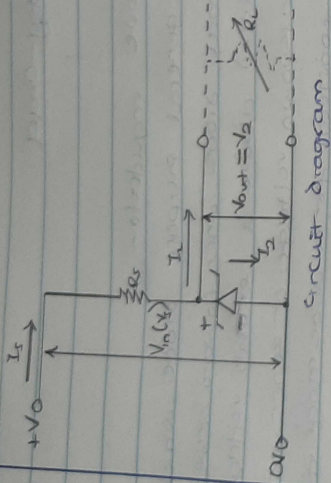 +V
Is
Rs
Vin(Vs)
IL
+
-
Vout = Vz
Iz
RL
0V
Circuit diagram